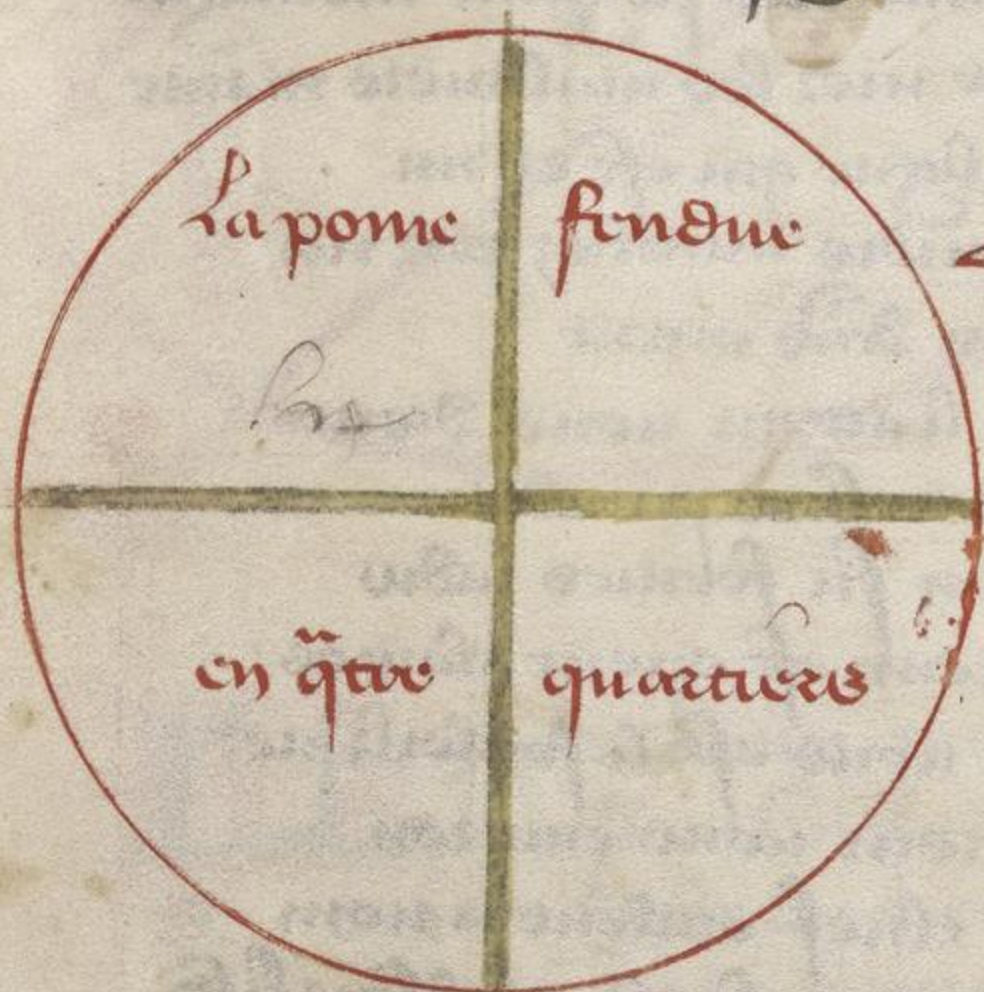 La pome fendue
en qᷓtre quartiers